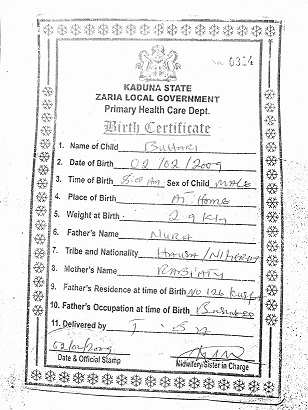 No. 0314
KADUNA STATE
ZARIA LOCAL GOVERNMENT
Primary Health Care Dept.
Birth Certificate
1. Name of Child BUHARI
2. Date of Birth 02/02/2009
3. Time of Birth 8:00 AM Sex of Child MALE
4. Place of Birth AT HOME
5. Weight at Birth 2.9 Kg
6. Father's Name NURA
7. Tribe and Nationality HAUSA/NIGERIA
8. Mother's Name
9. Father's Residence at time of Birth NO 126
10. Father's Occupation at time of Birth Business
11. Delivered by
Date & Official Stamp
Midwifery/Sister in Charge